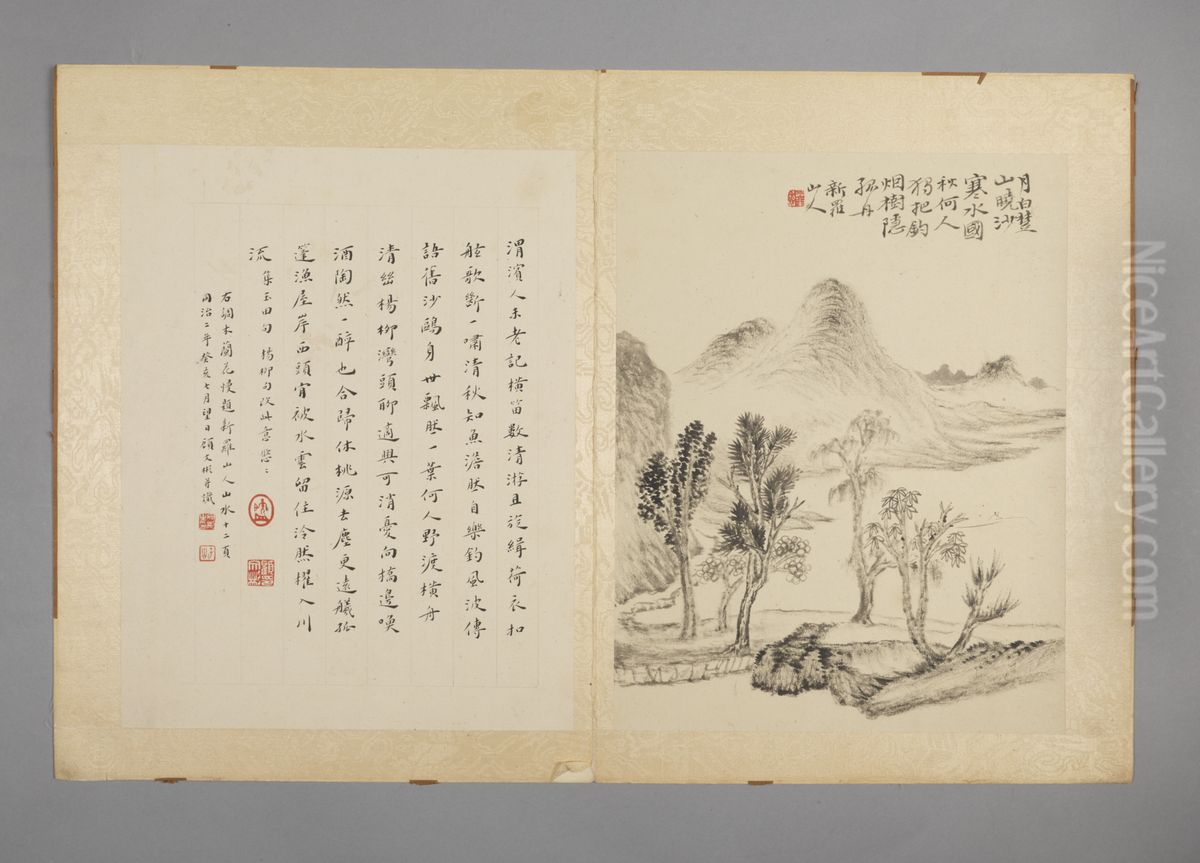 月白楚
山曉沙
寒水國
秋何人
獨把釣
烟樹隱
孤舟
新羅
山人
渭濱人未老記橫笛數清游且旋緝荷衣扣
舷歌斷一嘯清秋知魚澹然自樂釣風波傳
語舊沙鷗身世飄然一葉何人野渡橫舟
清幽楊柳灣頭聊適興可消憂向橋邊喚
酒陶然一醉也合歸休桃源去塵更遠艤孤
篷漁屋岸西頭甯被水雲留住泠然櫂入川
流 集玉田句 楊柳句改此意悠〻
右調木蘭花慢題新羅山人山水十二頁
同治二年癸亥七月望日顧文彬并識
NiceArtGallery.com